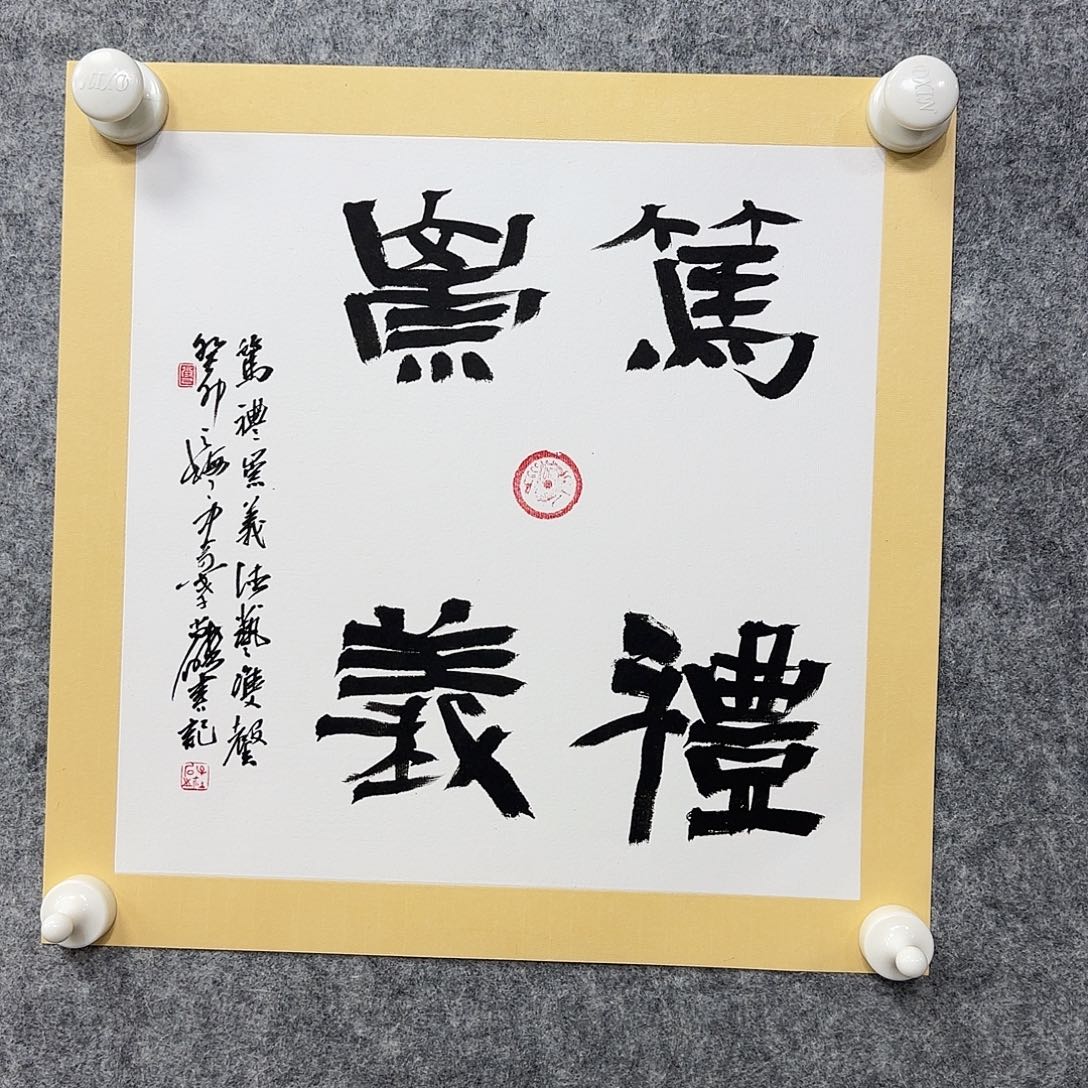 篤禮
崇義
篤禮崇義德藝雙馨
癸卯 書記